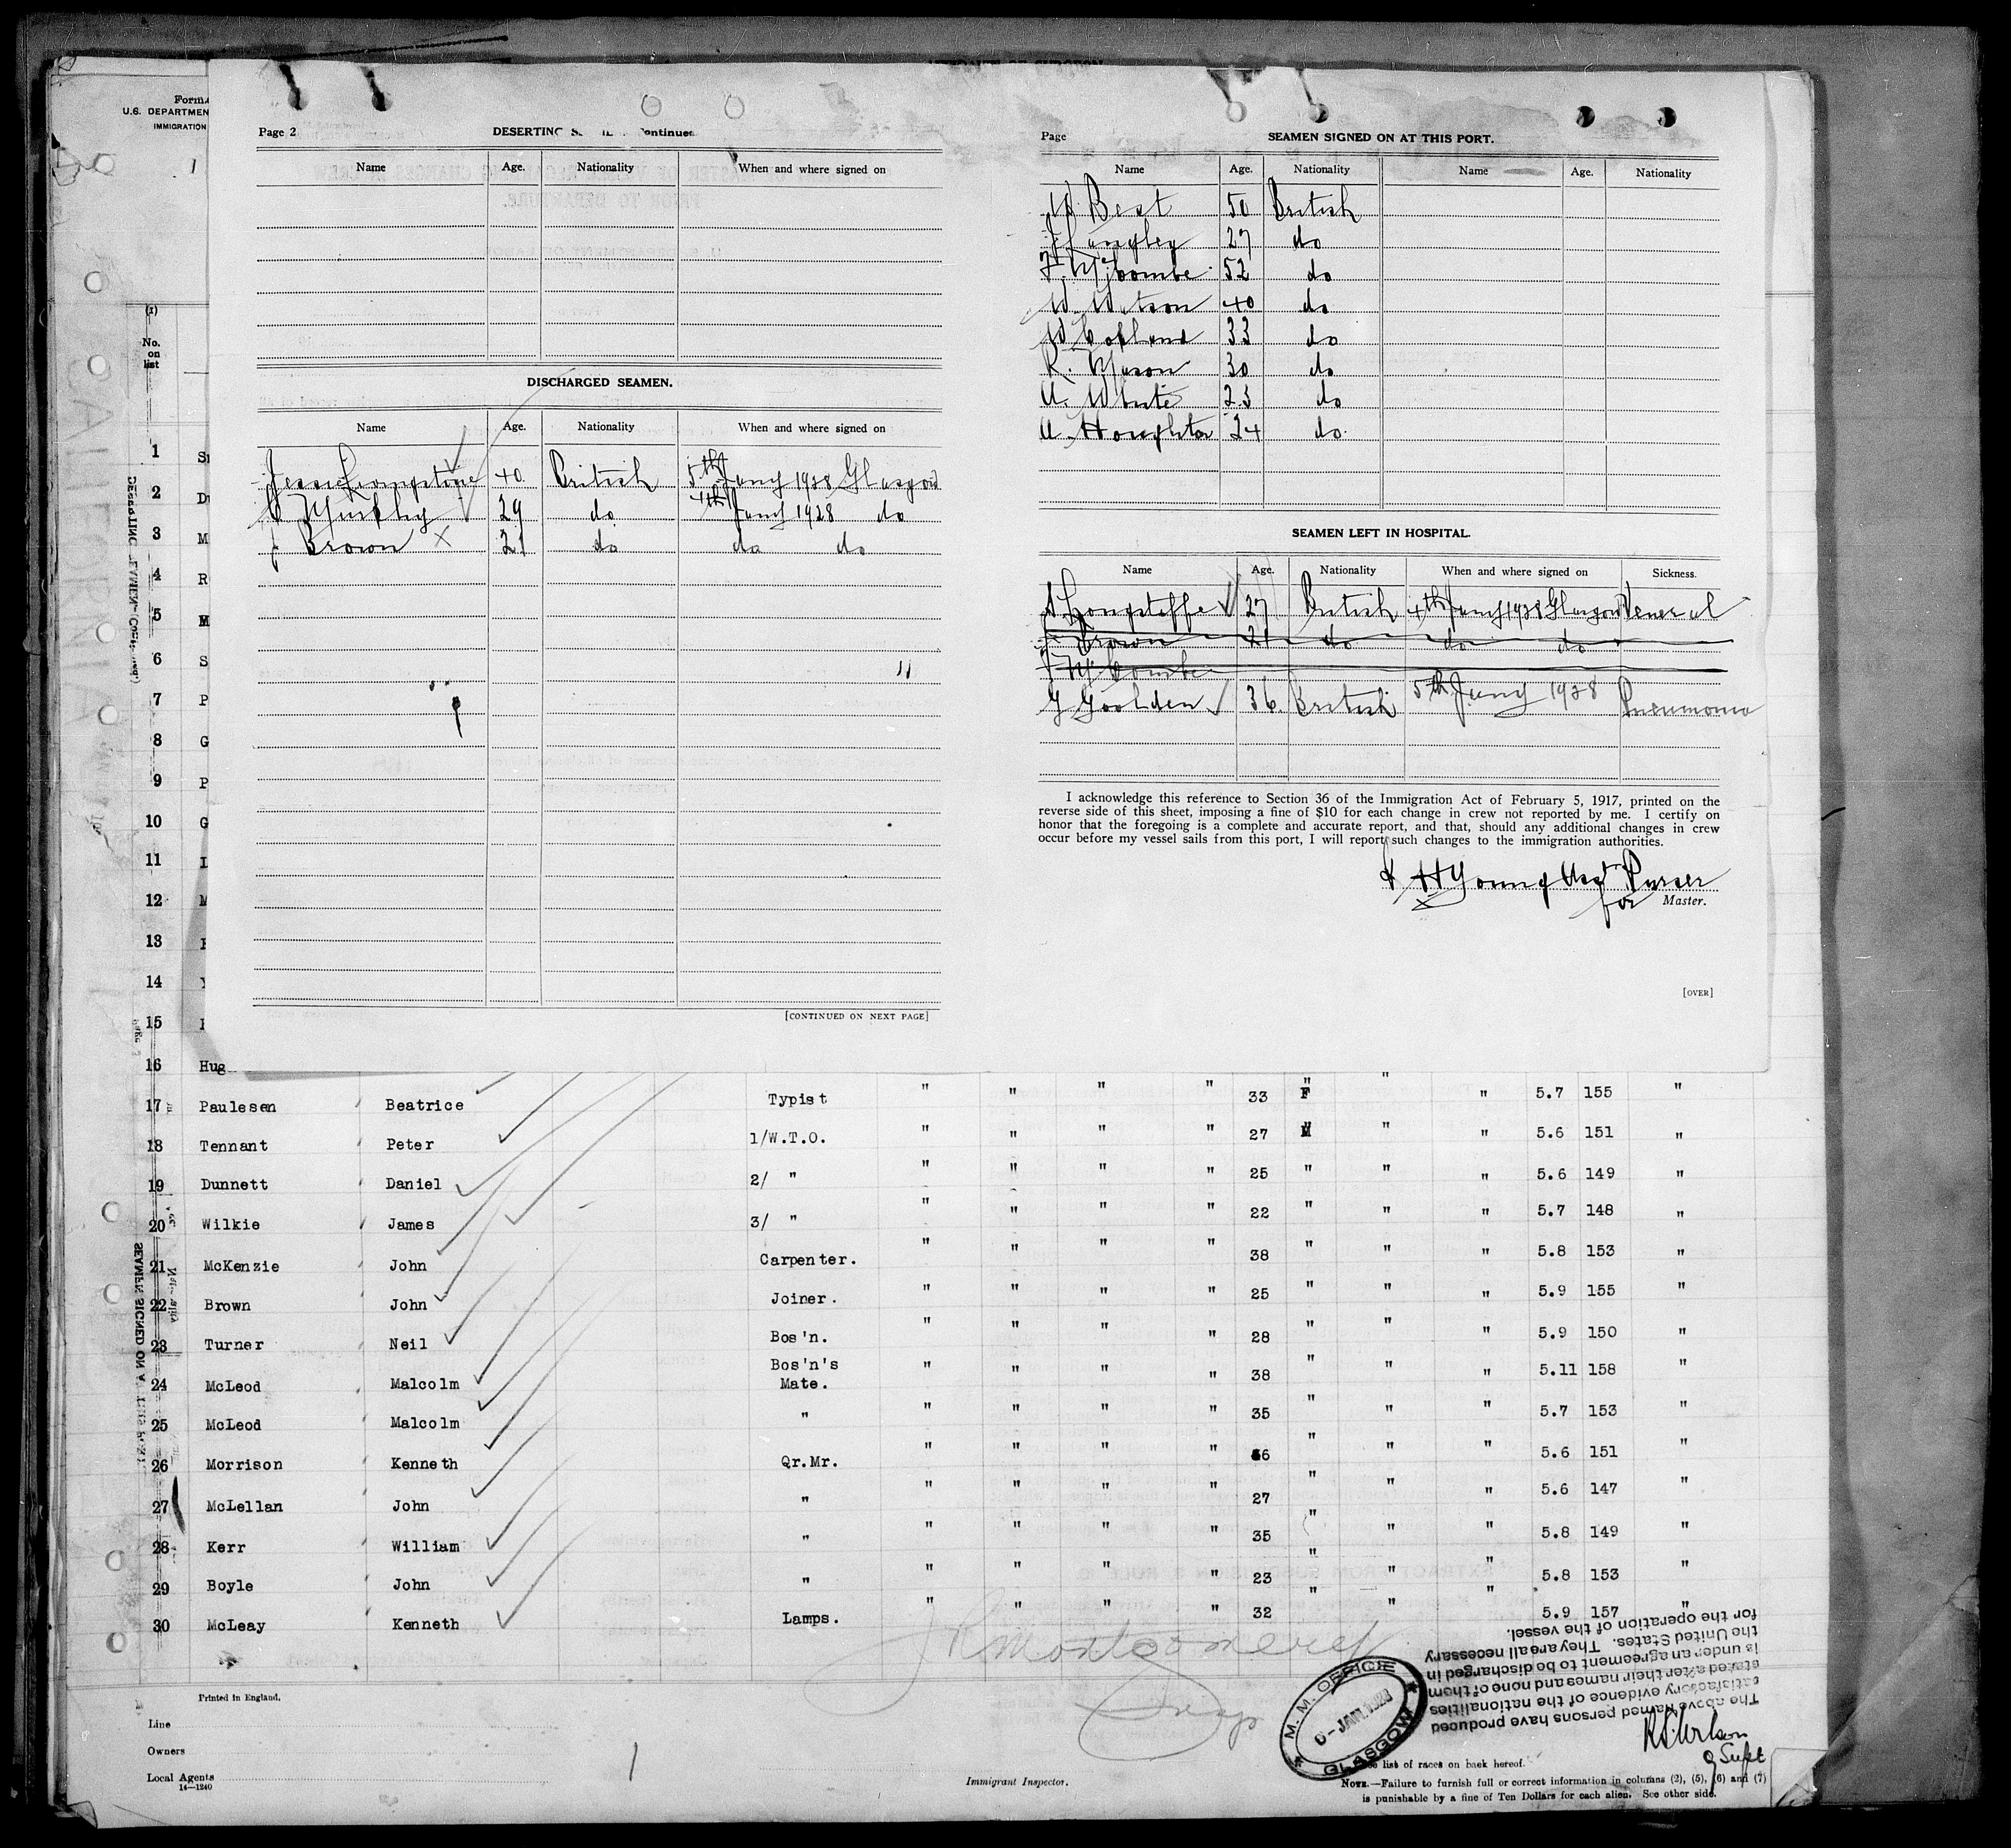 Form
U.S. DEPARTMEN
IMMIGRATION
(1)
No. on list
Page 2
DESERTING S Continued
Name Age. Nationality When and where signed on
DISCHARGED SEAMEN.
Name Age. Nationality When and where signed on
Jessie Livingstone 40 British 5th Jany 1928 Glasgow
Murphy 29 do 4th Jany 1928 do
J Brown X 21 do do do
[CONTINUED ON NEXT PAGE]
Page
SEAMEN SIGNED ON AT THIS PORT.
Name Age. Nationality Name Age. Nationality
W Best 50 British
J Langley 27 do
J. McCombe 52 do
W Watson 40 do
W Copland 33 do
R. Mason 30 do
A. White 23 do
A. Houghton 24 do.
SEAMEN LEFT IN HOSPITAL.
Name Age. Nationality When and where signed on Sickness.
S Longstaffe 27 British 4th Jany 1928 Glasgow Venereal
J Brown 21 do do do
J McCombe
G Goolden 36. British 5th Jany 1928 Pneumonia
I acknowledge this reference to Section 36 of the Immigration Act of February 5, 1917, printed on the
reverse side of this sheet, imposing a fine of $10 for each change in crew not reported by me. I certify on
honor that the foregoing is a complete and accurate report, and that, should any additional changes in crew
occur before my vessel sails from this port, I will report such changes to the immigration authorities.
H Young Asst Purser
for Master.
[OVER]
1
2
3 M
4 R
5 M
6 S
7 P
8 G
9 P
10 G
11
12 M
13
14
15
16 Hug
17 Paulesen Beatrice Typist " " " " 33 F " " 5.7 155 "
18 Tennant Peter 1/W.T.O. " " " " 27 M " " 5.6 151 "
19 Dunnett Daniel 2/ " " " " " 25 " " " 5.6 149 "
20 Wilkie James 3/ " " " " " 22 " " " 5.7 148 "
21 McKenzie John Carpenter. " " " " 38 " " " 5.8 153 "
22 Brown John Joiner. " " " " 25 " " " 5.9 155 "
23 Turner Neil Bos'n. " " " " 28 " " " 5.9 150 "
24 McLeod Malcolm Bos'n's Mate. " " " " 38 " " " 5.11 158 "
25 McLeod Malcolm " " " " " 35 " " " 5.7 153 "
26 Morrison Kenneth Qr.Mr. " " " " 6 " " " 5.6 151 "
27 McLellan John " " " " " 27 " " " 5.6 147 "
28 Kerr William " " " " " 35 " " " 5.8 149 "
29 Boyle John " " " " " 23 " " " 5.8 153 "
30 McLeay Kenneth Lamps. " " " " 32 " " " 5.9 157 "
J R Montgomery
Insp
The above Named persons have produced
satisfactory evidence of the nationalities
stated after their names and none of them
is under an agreement to be discharged in
the United States. They are all necessary
for the operation of the vessel.
M. M. OFFICE
JAN. 1928
GLASGOW
Supt
Printed in England.
Line
Owners
Local Agents
14—1240
Immigrant Inspector.
list of races on back hereof.
NOTE.—Failure to furnish full or correct information in columns (2), (5), (6) and (7)
is punishable by a fine of Ten Dollars for each alien. See other side.